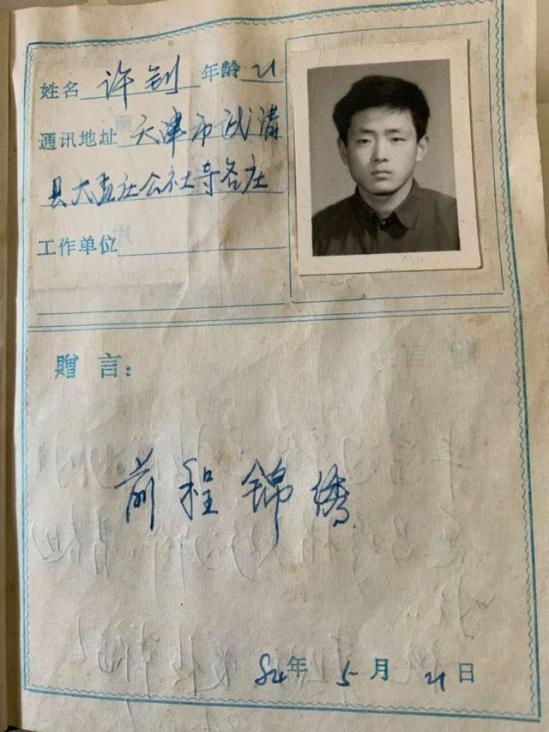 姓名 许钊 年龄 21
通讯地址 天津市武清
县大孟庄公社寺各庄
工作单位
赠言：
前程锦绣
84年5月21日